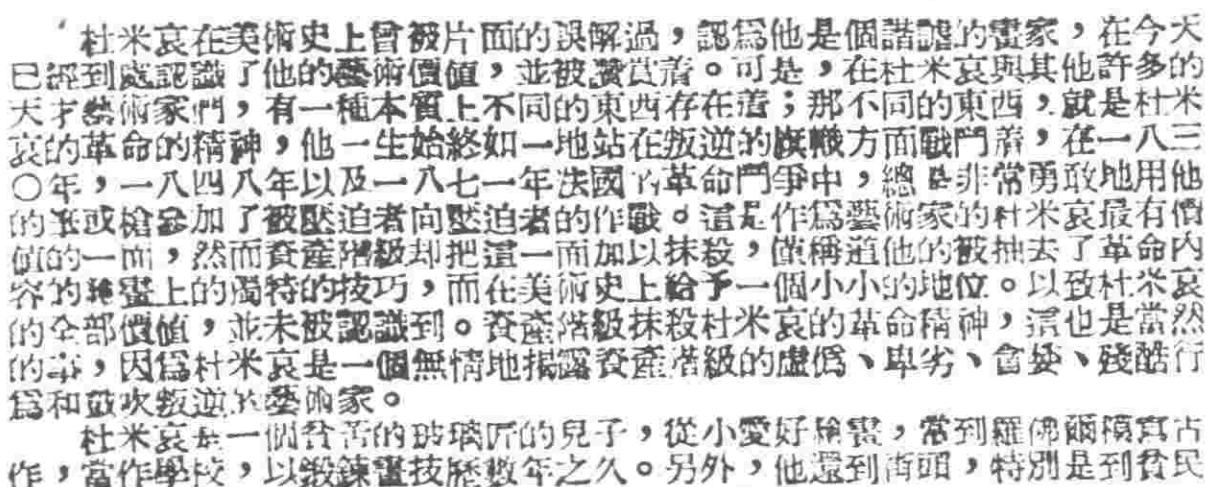 杜米哀在美術史上曾被片面的誤解過，認爲他是個諧謔的畫家，在今天
已經到處認識了他的藝術價値，並被讚賞着。可是，在杜米哀與其他許多的
天才藝術家們，有一種本質上不同的東西存在着；那不同的東西，就是杜米
哀的革命的精神，他一生始終如一地站在叛逆的旗幟方面戰鬥着，在一八三
○年，一八四八年以及一八七一年法國的革命鬥爭中，總是非常勇敢地用他
的筆或槍參加了被壓迫者向壓迫者的作戰。這是作爲藝術家的杜米哀最有價
値的一面，然而資產階級却把這一面加以抹殺，僅稱道他的被抽去了革命内
容的繪畫上的獨特的技巧，而在美術史上給予一個小小的地位。以致杜米哀
的全部價値，並未被認識到。資產階級抹殺杜米哀的革命精神，這也是當然
的事，因爲杜米哀是一個無情地揭露資產階級的虛僞、卑劣、貪婪、殘酷行
爲和鼓吹叛逆的藝術家。
杜米哀是一個貧苦的玻璃匠的兒子，從小愛好繪畫，常到羅佛爾模寫古
作，當作學校，以鍛鍊畫技歷數年之久。另外，他還到街頭，特別是到貧民